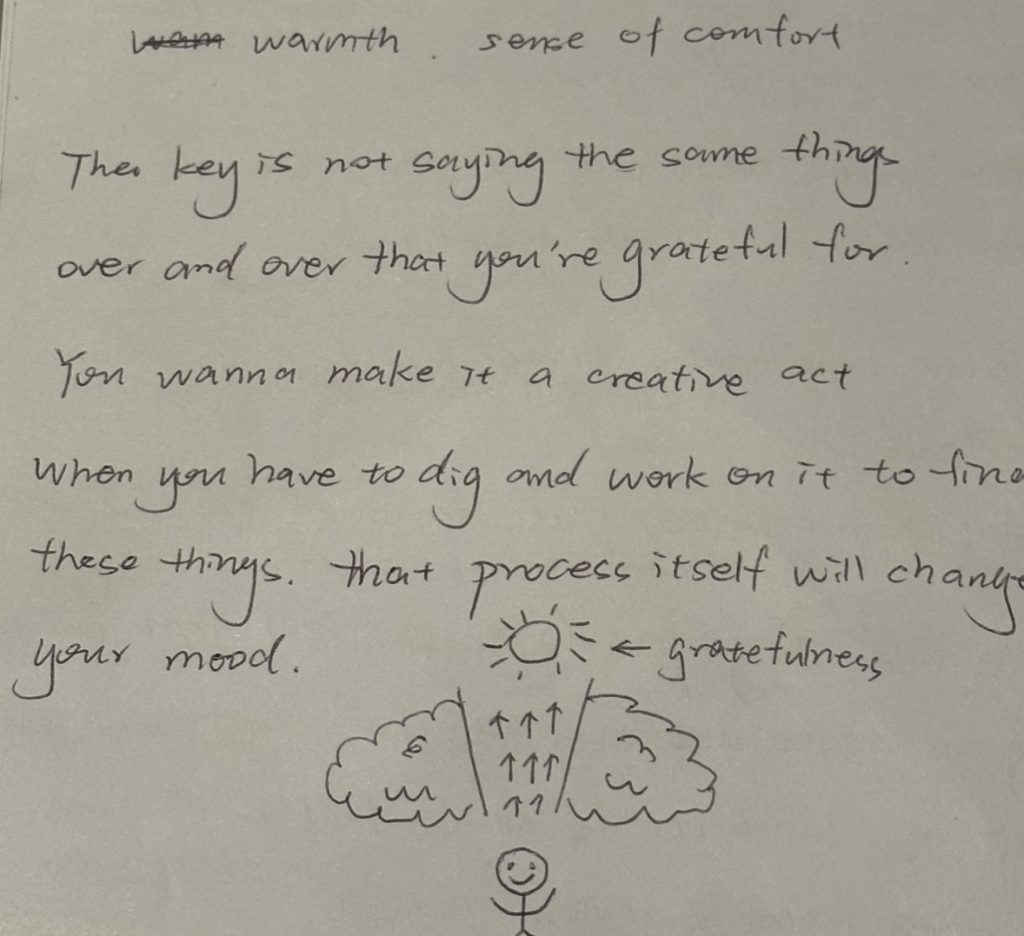 warmth . sense of comfort
The key is not saying the same things
over and over that you're grateful for.
You wanna make it a creative act
when you have to dig and work on it to find
these things. that process itself will change
your mood.
← gratefulness